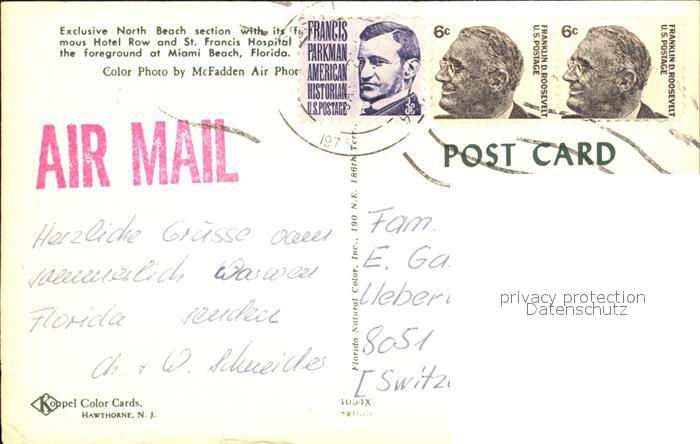 Exclusive North Beach section with its
mous Hotel Row and St. Francis Hospital
the foreground at Miami Beach, Florida.
Color Photo by McFadden Air
FRANCIS
PARKMAN
AMERICAN
HISTORIAN
U.S. POSTAGE
3c
6c
FRANKLIN D. ROOSEVELT
U.S. POSTAGE
6c
FRANKLIN D. ROOSEVELT
U.S. POSTAGE
197
AIR MAIL
POST CARD
Herzliche Grüsse vom
sommerlich Warmen
Florida senden
Ch. + W. Schneider
Florida Natural Color, Inc., 190 N.E. 186th Ter.
Fam.
E. Ga
Ueber
8051
[Switz
privacy protection
Datenschutz
Koppel Color Cards.
HAWTHORNE, N. J.
4054X